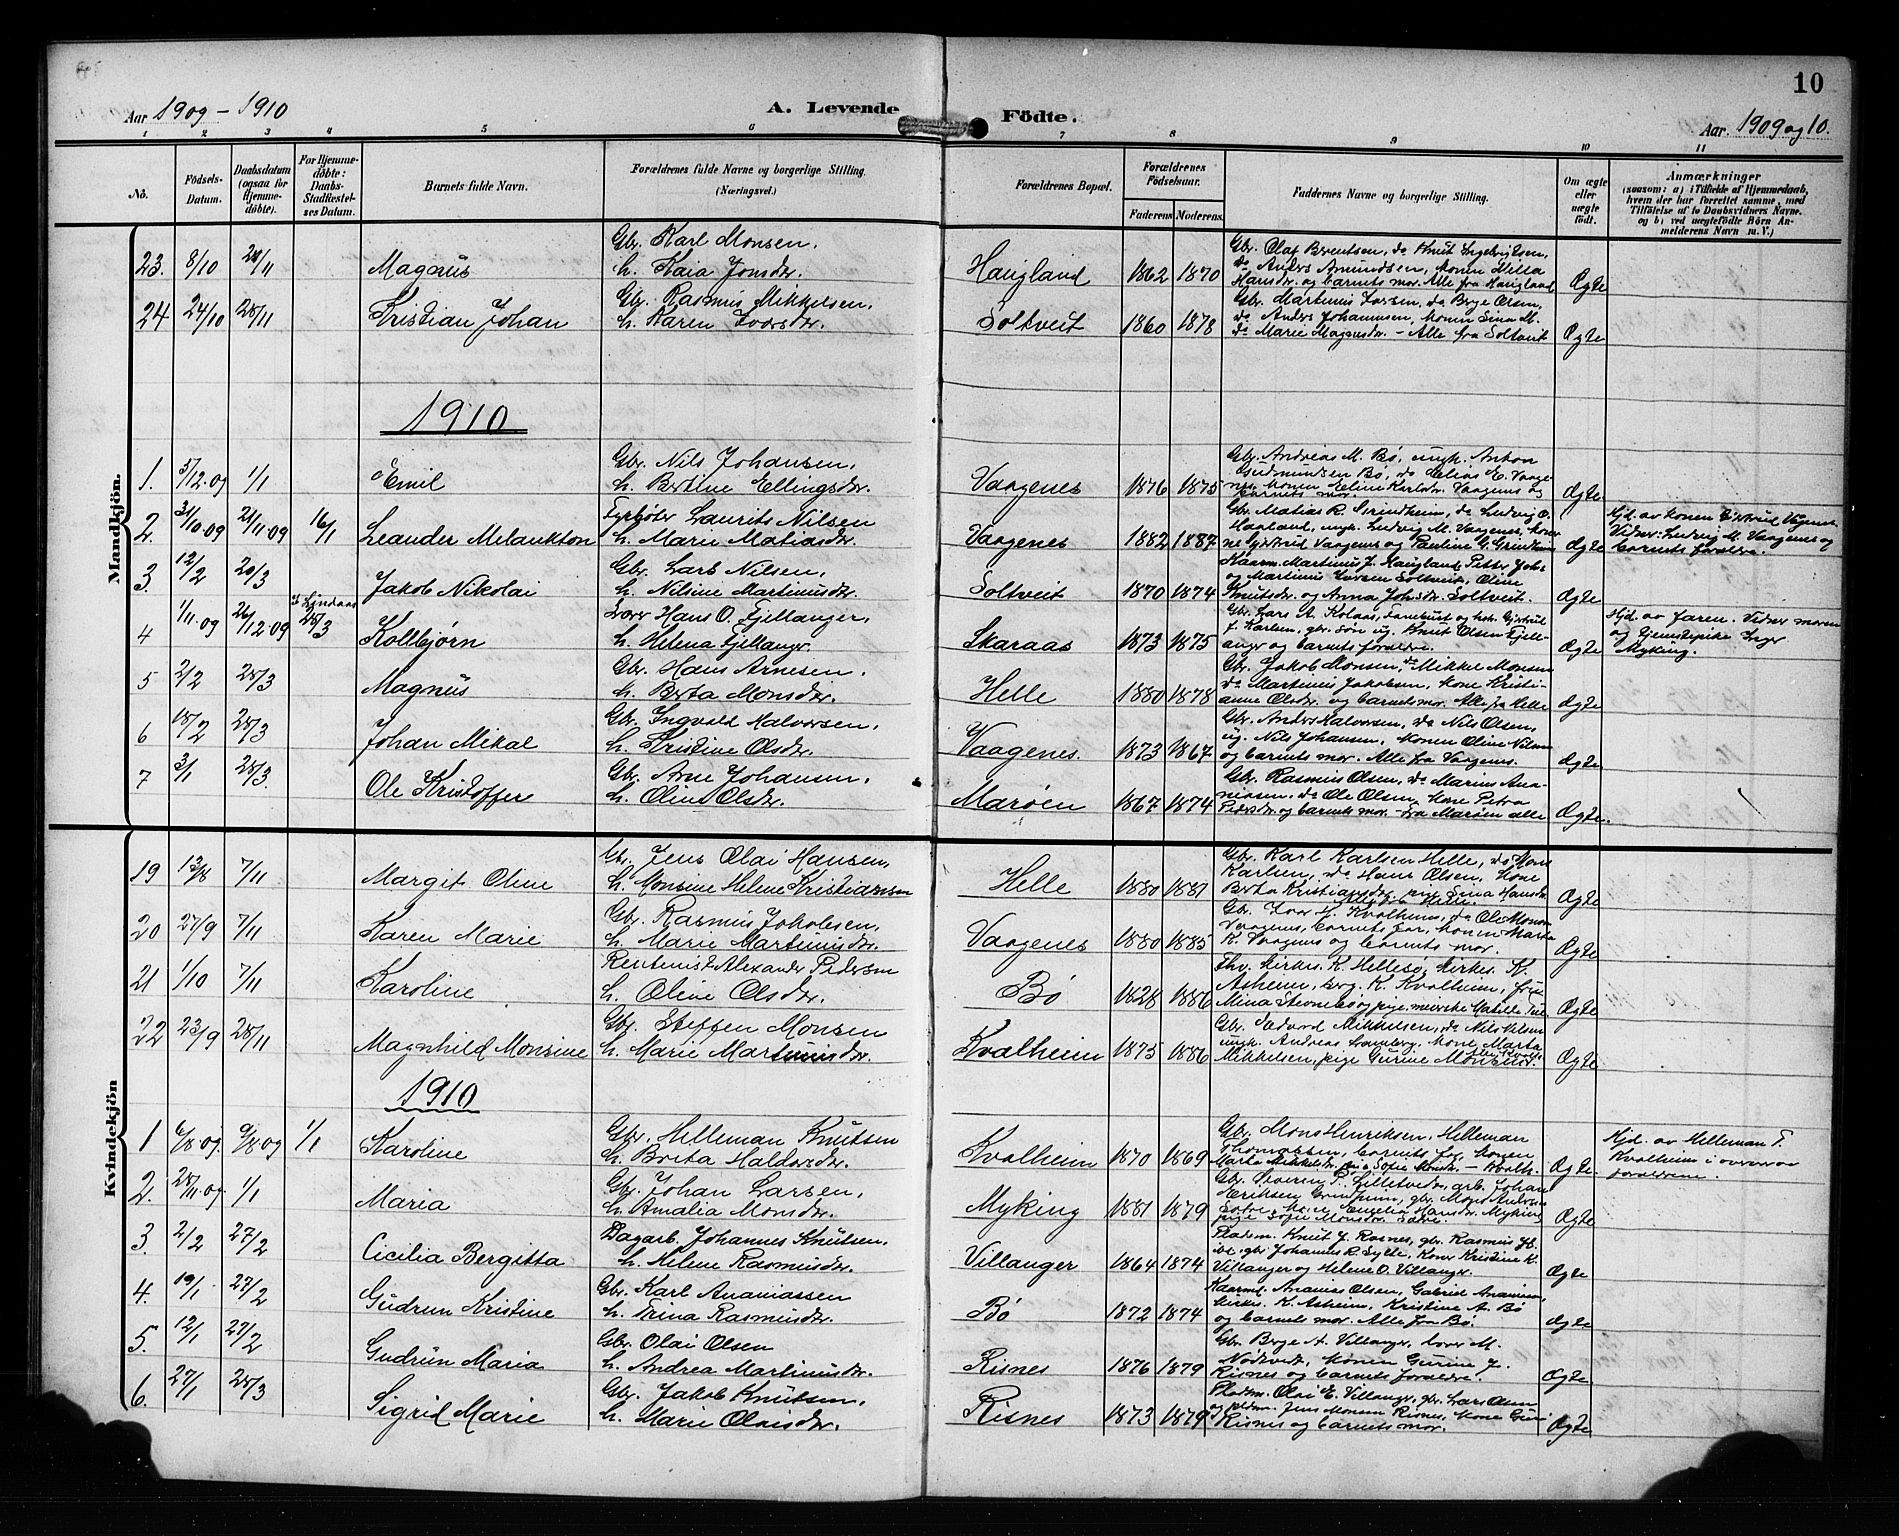 10
Aar 1909 - 1910
A. Levende
Födte.
Aar. 1909 og 10.
1 2 3 4 5 6 7 8 9 10 11
No. Födsels-Datum. Daabsdatum (ogsaa for Hjemmedöbte). For Hjemmedöbte: Daabs-Stadfæstelses Datum. Barnets fulde Navn. Forældrenes fulde Navne og borgerlige Stilling. (Næringsvei.) Forældrenes Bopæl. Forældrenes Födselsaar. Faderens Moderens. Faddernes Navne og borgerlige Stilling. Om ægte eller uægte födt. Anmærkninger (saasom: a) i Tilfælde af Hjemmedaab, hvem der har forrettet samme, med Tilföielse af to Daabsvidners Navne. og b) ved uægtefödte Börn Anmelderens Navn m. V.)
Mandkjön.
23. 8/10 28/11 Magnus
Gbr. Karl Monsen.
h. Kaia Jonsdr.
Haugland 1862 1870
Gbr. Olaf Berntsen, do Knut Ingebrigtsen,
do Anders Amundsen, konen Milla
Hansdr. og barnets mor. Alle fra Haugland
Ægte
24 24/10 28/11 Kristian Johan
Gbr. Rasmus Mikkelsen.
h. Karen Iversdr.
Soltveit 1860 1878
Gbr. Martinus Iversen, do Brge Olsen,
do Anders Johannesen, konen Sina M.
do Marie Magnusdr. - Alle fra Soltveit
Ægte
1910
1. 5/12.09 1/1 Emil
Gbr. Nils Johansen.
h. Bertine Ellingsdr.
Vaagenes 1876 1875
Gbr. Andreas M. Bø, ungk. Anton
Gudmundsen Bø, do Elias E. Vaage-
nes, konen Eline Karlsdr. Vaagenes og
barnets mor.
Ægte
2. 31/10.09 21/11.09 16/1 Leander Melankton
Fyrbøter Laurits Nilsen
h. Marie Matiasdr.
Vaagenes 1882 1887
Gbr. Matias R. Grindheim, do Ludvig O.
Haaland, ungk. Ludvig M. Vaagenes, koner-
ne Gjertrud Vaagenes og Pauline G. Grindheim
Ægte
Hjd. av konen Gjertrud Vågenes
Vidner: Ludvig M. Vaagenes og
barnets forældre.
3. 12/2 20/3 Jakob Nikolai
Gbr. Lars Nilsen,
h. Nilsine Martinusdr.
Soltveit 1870 1874
Kaarm. Martinus J. Haugland, Petter Johs.
og Martinus Iversen Soltveit, Oline
Knutsdr. og Anna Johsdr. Soltveit.
Ægte
4 1/11.09 26/12.09 I Lindaas 28/3 Kolbjørn
Lærer Hans O. Fjellanger,
h. Helena Fjellanger.
Skaraas 1873 1875
Gbr. Lars A. Kolaas, Fanebust og hst. Gjertrud
J. Karlsen, gbr. Søn ug. Knut Olsen Fjell-
anger og barnets forældre.
Ægte
Hjd. av faren. Vidner moren
og tjenestepike Inger
Myking.
5 2/2 28/3 Magnus
Gbr. Hans Arnesen.
h. Berta Monsdr.
Helle 1880 1878
Gbr. Jakob Monsen, do Mikkel Monsen
do Martinus Jakobsen, kone Kristi-
anne Olsdr. og barnets mor. Alle fra Helle
Ægte
6 18/2 28/3 Johan Mikal
Gbr. Ingvald Halvorsen.
h. Kristine Olsdr.
Vaagenes. 1873 1867
Gbr. Anders Halvorsen, do Nils Olsen,
ug. Nils Johansen, konen Oline Nilsen
og barnets mor. Alle fra Vaagenes.
Ægte
7 3/1 28/3. Ole Kristoffer
Gbr. Arne Johansen.
h. Oline Olsdr.
Marøen 1867 1874
Gbr. Rasmus Olsen, do Marius Ana-
niasen, do Ole Olsen, kone Petra
Pedersdr. og barnets mor. fra Marøen alle
Ægte.
Kvindekjön
19 13/8 7/11 Margit Oline
Gbr. Jens Olai Hansen,
h. Monsine Helene Kristiansen
Helle 1880 1881
Gbr. Karl Karlsen Helle, do Mons
Karlsen, do Hans Olsen, kone
Berta Kristiansdr., pige Sina Hansdr.
Alle fra Helle.
Ægte
20 27/9 7/11 Karen Marie
Gbr. Rasmus Jakobsen,
h. Marie Martinusdr.
Vaagenes 1880 1885
Gbr. Ivar J. Kvalheim, do Ole Monsen
Vaagenes, barnets far, konen Marta
K. Vaagenes og barnets mor.
Ægte
21 1/10 7/11 Karoline
Rentenist Alexander Pedersen
h. Oline Olsdr.
Bø 1828 1886
Fhv. kirkes. K. Hellesø, kirkes. K.
Asheim, brg. K. Kvalheim, frue
Mina Stevnebø og pige
Ægte
22 23/9 28/11 Magnhild Monsine
Gbr. Steffen Monsen
h. Marie Martinusdr.
Kvalheim 1875 1886
Gbr. Edvard Mikkelsen, do Nils Nilsen
ungk. Andreas Landberg, kone Marta
Mikkelsen, pige Gurine Monsdr.
Ægte
1910
1 6/8.09. 9/8.09 1/1 Karoline
Gbr. Helleman Knutsen
h. Brita Haldorsdr.
Kvalheim 1870 1869
Gbr. Mons Henriksen, Helleman
Thomassen, barnets far, konen
Marta Mikkelsdr. pige Sofie Monsdr. - Kvalh.
Ægte
Hjd. av Helleman T.
Kvalheim i overvær av
forældrene.
2. 28/11.09. 1/1 Maria
Gbr. Johan Larsen,
h. Amalia Monsdr.
Myking 1881 1879
Gbr. Severin T. Lilletvedt, arb. Johan
Eriksen Grindheim, gbr. Mons Anders.
Sætre, kone Amalia Hansdr. Myking
pige Sofie Monsdr. Sætre.
Ægte
3. 2/2 27/2 Cicilia Bergitta
Dagarb. Johannes Knutsen,
h. Helene Rasmusdr.
Villanger 1864 1874
Pladsm. Knut J. Rosnes, gbr. Rasmus
gbr. Johannes R. Sylte, kone Kristine K.
Villanger og Helene O. Villanger.
Ægte
4. 19/1 27/2 Gudrun Kristine
Gbr. Karl Ananiassen
h. Trina Rasmusdr.
Bø 1872 1874
Kaarmd. Ananias Olsen, Gabriel Ananiasen,
kirkes. K. Asheim, Kristine A. Bø
og barnets mor. Alle fra Bø.
Ægte
5. 12/1 27/2 Gudrun Maria
Gbr. Olai Olsen
h. Andrea Martinusdr.
Risnes 1876 1879
Gbr. Brge A. Villanger, lærer M.
Nødtvedt, konen Gurine J.
Risnes og barnets forældre.
Ægte
6. 27/1 28/3 Sigrid Marie
Gbr. Jakob Knutsen.
h. Marie Olaisdr.
Risnes 1873 1879
Pladsm. Olai E. Villanger, gbr. Lars Olsen
Jens Monsen Risnes, kone Guri
Risnes og barnets mor.
Ægte